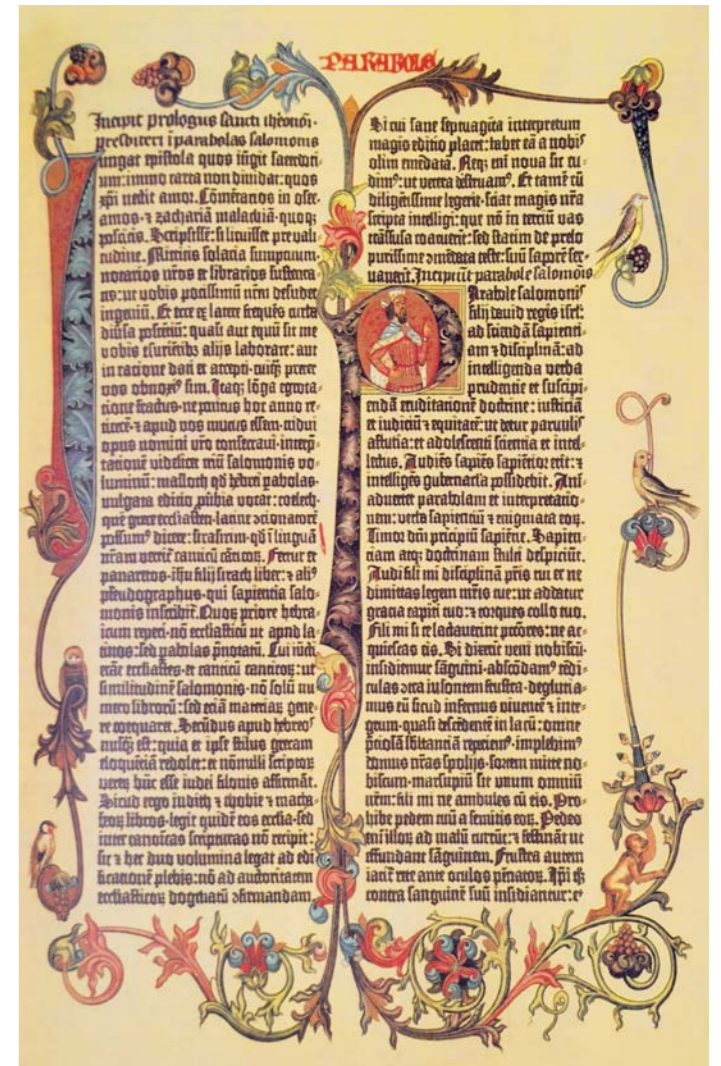 PARABOLE
Incipit prologus sancti iheronimi
presbiteri i parabolas salomonis
Iungat epistola quos iūgit sacerdoti-
um: immo carta non diuidat: quos
xpi nectit amor. Cōmētarios in osee.
amos. ⁊ zachariā malachiā. quoqꝫ
poscitis. Scripsissē: si licuisset pre vali-
tudine. Mittitis solacia sumptuum.
notarios nr̄os et librarios sustenta-
tis: ut vobis potissimū nr̄m desudet
ingeniū. Et ecce ex latere frequēs turba
diūsa poscēciū: quasi aut equū sit me
vobis esurientibꝫ alijs laborare: aut
in racione dati et accepti. cuiqꝫ preter
vos obnoxiꝰ sim. Itaqꝫ lōga egrota-
cione fractus. ne penitus hoc anno re-
ticerē. ⁊ apud vos mutus essem. tridui
opus nomini vr̄o consecraui. interp̄-
tationē videlicet triū salomonis vo-
luminū: masloth qd hebrei pabolas.
vulgata editio ꝓuerbia vocat: coeleth.
quē grece ecclesiasten. latine ↄcionatorē
possumꝰ dicere: sirasirim. qd i linguā
nr̄am vertit canticū cāticoꝝ. Fertur et
panaretos. ihu filij sirach liber: ⁊ aliꝰ
pseudographus. qui sapientia salo-
monis inscribit̄. Quoꝝ priorē hebra-
icum repperi. nō ecclesiasticū ut apud la-
tinos: sed pabolas p̄notatū. Cui iūcti
erāt ecclesiastes. et canticū canticoꝝ: ut
similitudinē salomonis. nō solū nu-
mero librorū: sed eciā materiaꝝ gene-
re coequaret. Secūdus apud hebreos
nusqꝫ est: quia et ipse stilus grecam
eloquēciā redolet: et nōnulli scriptoꝝ
veteꝝ hūc esse iudei filonis affirmāt.
Sicud ergo iudith ⁊ thobie ⁊ macha-
beoꝝ libros. legit quidē eos ecclesia. sed
inter canoicas scripturas nō recipit:
sic ⁊ hec duo volumina legat ad edi-
ficationē plebis: nō ad auctoritatem
ecclesiasticoꝝ dogmatū ↄfirmandam.
Si cui sane septuagīta interpretum
magis editio placet: habet eā a nobis
olim emēdatā. Neqꝫ eni noua sic cu-
dimꝰ: ut vetera destruamꝰ. Et tamē cū
diligētissime legerit. sciat magis nr̄a
scripta intelligi: que nō in terciū vas
trāsfusa coacuerīt: sed statim de prelo
purissime ↄmēdata teste: suū saporē ser-
uauerīt. Incipiūt parabole salomōis
Parabole salomonis
filij dauid regis isrl:
ad sciendā sapienti-
am ⁊ disciplinā: ad
intelligenda verba
prudentie et suscipi-
endā eruditationē doctrine: iusticiā
et iudiciū ⁊ equitatē: ut detur paruulis
astutia: et adolescenti scientia et intel-
lectus. Audiēs sapiēs sapiētior erit: ⁊
intelligēs gubernacla possidebit. Ani-
aduertet parabolam et interpretatio-
nem: verba sapientiū ⁊ enigmata eoꝝ.
Timor dn̄i principiū sapiētie. Sapien-
tiam atqꝫ doctrinam stulti despiciūt.
Audi fili mi disciplinā pr̄is tui et ne
dimittas legem mr̄is tue: ut addatur
gracia capiti tuo: ⁊ torques collo tuo.
Fili mi si te lactauerint pctōres: ne ac-
quiescas eis. Si dixerīt veni nobiscū.
insidiemur sāguini. abscōdamꝰ tēdi-
culas ↄtra insontem frustra. deglutia-
mus eū sicud infernus viuentē ⁊ inte-
grum. quasi descēdentē in lacū: omnē
p̄ciosā substantiā repriemꝰ. implebimꝰ
domus nr̄as spolijs. sortem mitte no-
biscum. marsupiū sit vnum omniū
nr̄m: fili mi ne ambules cū eis. Pro-
hibe pedem tuū a semitis eoꝝ. Pedes
eni illoꝝ ad malū currūt: ⁊ festināt ut
effundant sāguinem. Frustra autem
iacit̄ rete ante oculos pēnatoꝝ. Ipi qꝫ
contra sanguinē suū insidiantur: et